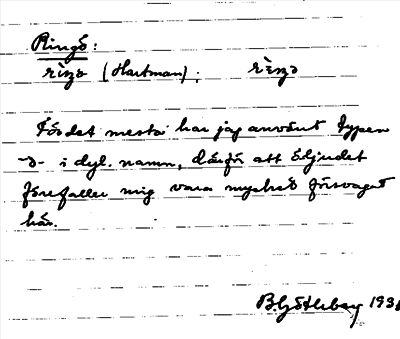 Ringö:
(Hartman);
För det mesta har jag använt typen
-ə- i dyl. namn, därför att ö-ljudet
förefaller mig vara mycket försvagat
här.
B. Götleborg 193